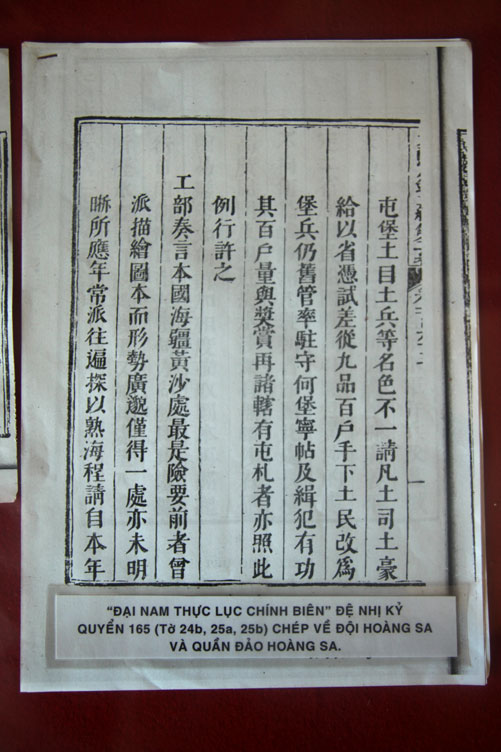 屯堡土目土兵等名色不一請凡土司土豪
給以省憑試差從九品百戶手下土民改爲
堡兵仍舊管率駐守何堡寧帖及緝犯有功
其百戶量與獎賞再諸轄有屯札者亦照此
例行許之
工部奏言本國海疆黃沙處最是險要前者曾
派描繪圖本而形勢廣邈僅得一處亦未明
晰所應年常派往遍探以熟海程請自本年
“ĐẠI NAM THỰC LỤC CHÍNH BIÊN” ĐỆ NHỊ KỶ
QUYỂN 165 (Tờ 24b, 25a, 25b) CHÉP VỀ ĐỘI HOÀNG SA
VÀ QUẦN ĐẢO HOÀNG SA.